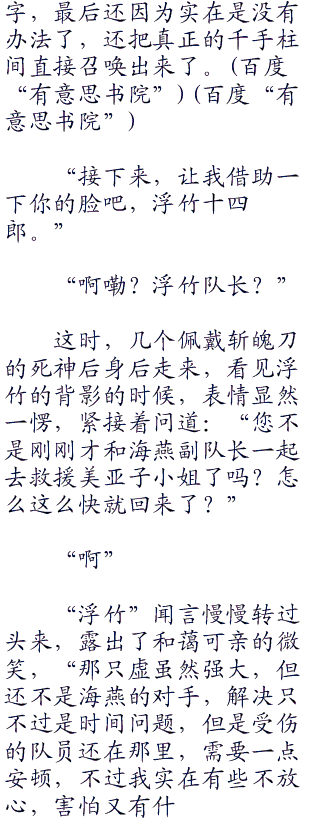 字，最后还因为实在是没有
办法了，还把真正的千手柱
间直接召唤出来了。(百度
“有意思书院”) (百度“有
意思书院”)
“接下来，让我借助一
下你的脸吧，浮竹十四
郎。”
“啊嘞？浮竹队长？”
这时，几个佩戴斩魄刀
的死神后身后走来，看见浮
竹的背影的时候，表情显然
一愣，紧接着问道：“您不
是刚刚才和海燕副队长一起
去救援美亚子小姐了吗？怎
么这么快就回来了？”
“啊”
“浮竹”闻言慢慢转过
头来，露出了和蔼可亲的微
笑，“那只虚虽然强大，但
还不是海燕的对手，解决只
不过是时间问题，但是受伤
的队员还在那里，需要一点
安顿，不过我实在有些不放
心，害怕又有什